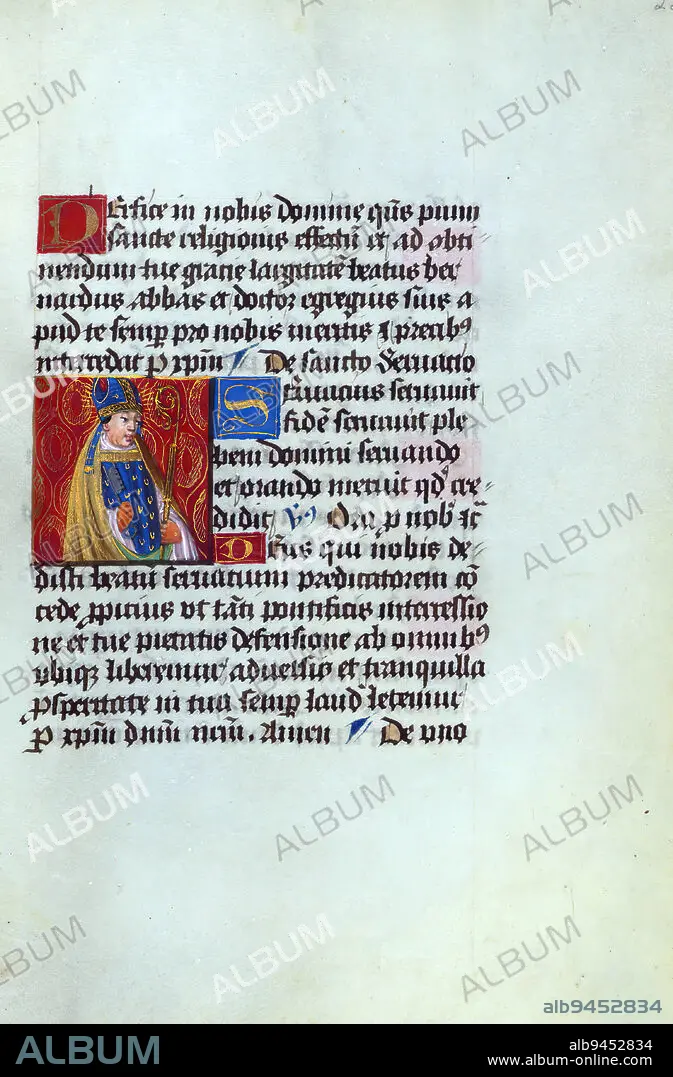 Perfice in nobis domine qs̄ pium
sancte religionis effectū et ad obti
nendum tue gracie largitatē beatus ber
nardus abbas et doctor egregius suis a
pud te semp̲ pro nobis meritis ⁊ precibꝯ
intercedat p̲ xp̄m De sancto Seruacio
Seruacius seruauit
fidē seruauit ple
bem domini seruando
et orando meruit qd̄ cre
didit V̲ꝯ Ora p nob̄ scē
Deus qui nobis de
disti beatū seruatium predicatorem cō
cede p̲picius vt tāti pontificis intercessio
ne et tue pietatis defensione ab omnibꝯ
vbiqꝫ liberemur aduersis et tranquilla
p̲speritate in tua semp̲ laud̄ letemur
P̲ xp̄m dn̄m nr̄m. Amen De vno
ALBUM
alb9452834
ALBUM
alb9452834
www.album-online.com